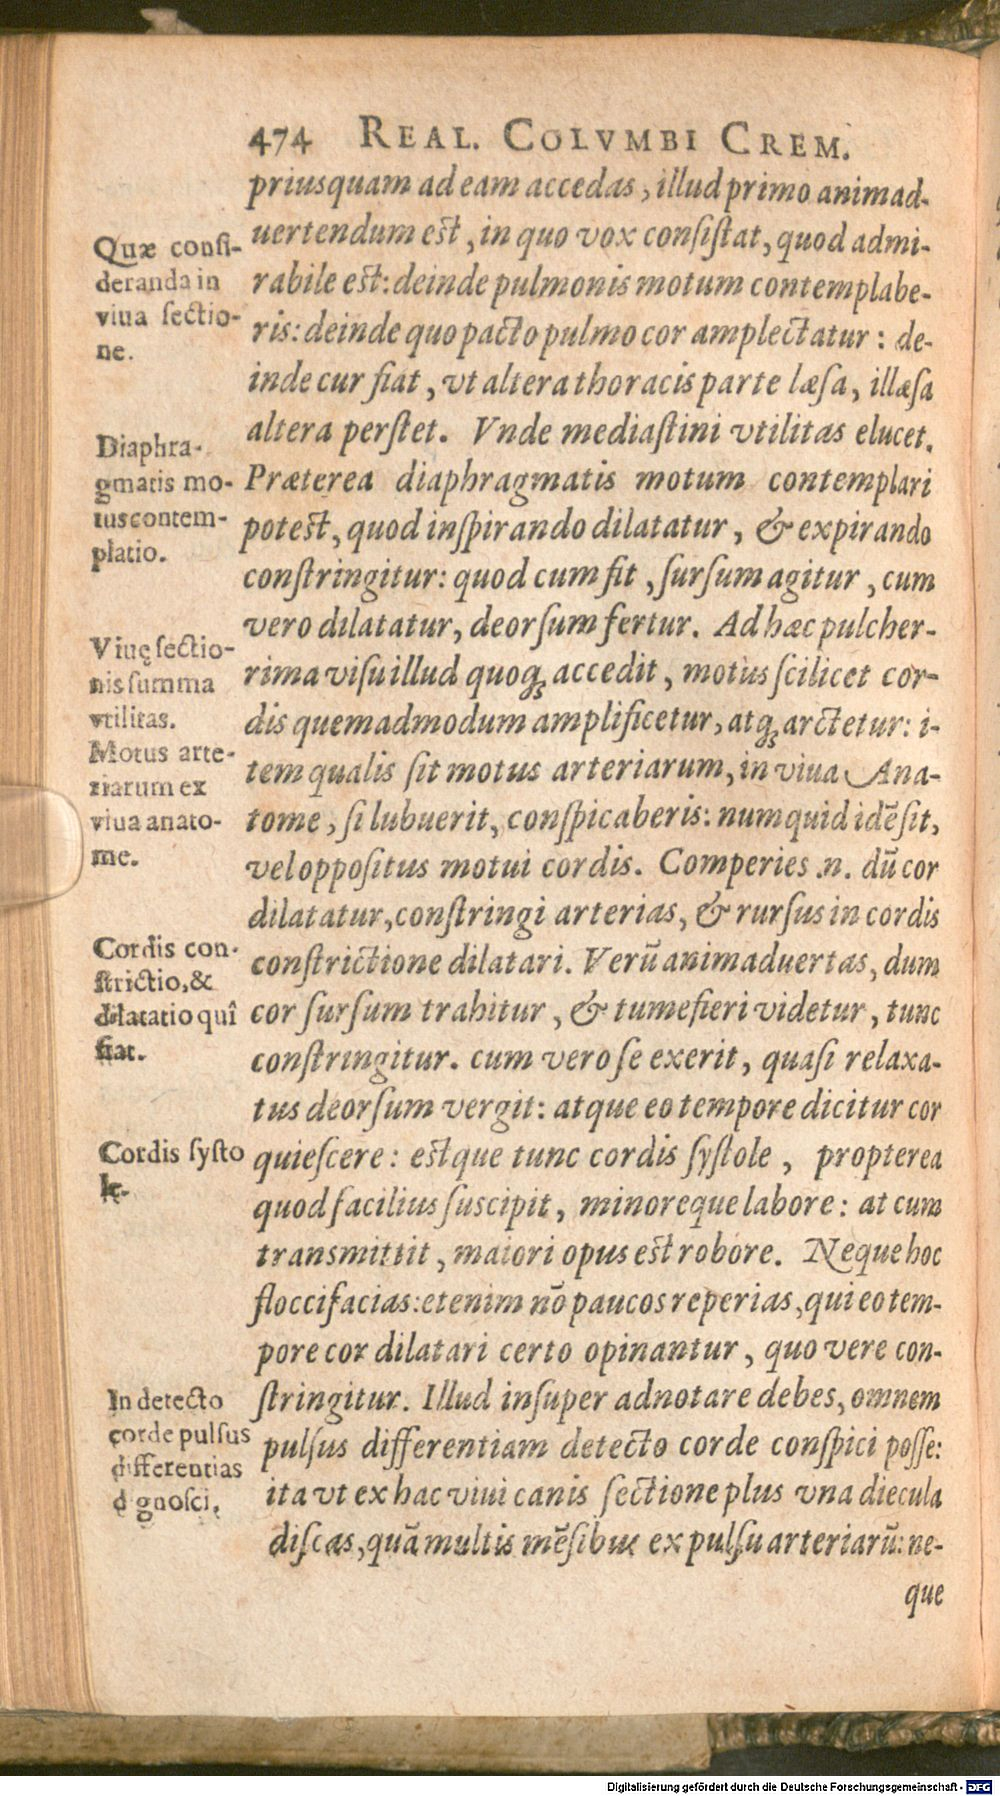 474 REAL. COLVMBI CREM.
priusquam ad eam accedas, illud primo animad-
uertendum est, in quo vox consistat, quod admi-
rabile est: deinde pulmonis motum contemplabe-
ris: deinde quo pacto pulmo cor amplectatur: de-
inde cur fiat, vt altera thoracis parte læsa, illæsa
altera perstet. Vnde mediastini vtilitas elucet.
Præterea diaphragmatis motum contemplari
potest, quod inspirando dilatatur, & expirando
constringitur: quod cum fit, sursum agitur, cum
vero dilatatur, deorsum fertur. Ad hæc pulcher-
rima visu illud quoq; accedit, motus scilicet cor-
dis quemadmodum amplificetur, atq; arctetur: i-
tem qualis sit motus arteriarum, in viua Ana-
tome, si lubuerit, conspicaberis: numquid idē sit,
vel oppositus motui cordis. Comperies .n. dū cor
dilatatur, constringi arterias, & rursus in cordis
constrictione dilatari. Verū animaduertas, dum
cor sursum trahitur, & tumefieri videtur, tunc
constringitur. cum vero se exerit, quasi relaxa-
tus deorsum vergit: atque eo tempore dicitur cor
quiescere: estque tunc cordis systole, propterea
quod facilius suscipit, minoreque labore: at cum
transmittit, maiori opus est robore. Neque hoc
floccifacias: etenim nō paucos reperias, qui eo tem-
pore cor dilatari certo opinantur, quo vere con-
stringitur. Illud insuper adnotare debes, omnem
pulsus differentiam detecto corde conspici posse:
ita vt ex hac viui canis sectione plus vna diecula
discas, quā multis mēsibus ex pulsu arteriarū: ne-
que
Quæ consi-
deranda in
viua sectio-
ne.
Diaphra-
gmatis mo-
tus contem-
platio.
Viuę sectio-
nis summa
vtilitas.
Motus arte-
riarum ex
viua anato-
me.
Cordis con-
strictio, &
dilatatio quî
fiat.
Cordis systo
le.
In detecto
corde pulsus
differentias
dignosci,
Digitalisierung gefördert durch die Deutsche Forschungsgemeinschaft - DFG